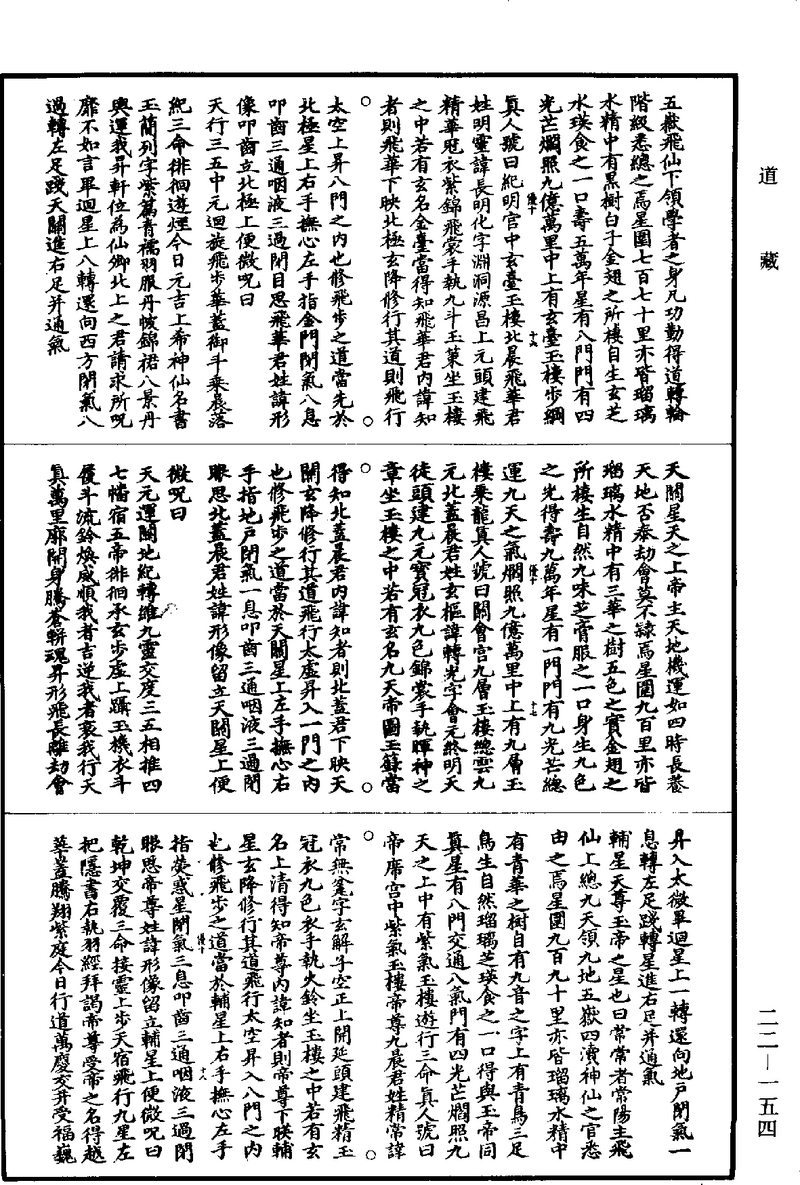 道藏
五嶽飛仙下領學者之身凡功勤得道轉輪
階級悉總之焉星圍七百七十里亦皆瑠璃
水精中有黑樹白子金翅之所棲自生玄芝
水瑛食之一口壽五萬年星有八門門有四
光芒爓照九億萬里中上有玄臺玉樓步綱
真人號曰紀明宮中玄臺玉樓北晨飛華君
姓明靈諱長明化字淵洞源昌上元頭建飛
精華冠衣紫錦飛裳手執九斗玉策坐玉樓
之中若有玄名金臺當得知飛華君內諱知
者則飛華下映北極玄降修行其道則飛行
○
太空上昇八門之內也修飛步之道當先於
北極星上右手撫心左手指金門閉氣八息
叩齒三通咽液三過閉目思飛華君姓諱形
像叩齒立北極上便微呪曰
天行三五中元迴旋飛步華蓋御斗乘晨落
紀三命徘徊遊煙今日元吉上希神仙名書
玉簡列字紫篇青襦羽服丹帔錦裙八景丹
輿運我昇軒位為仙卿北上之君請求所呪
靡不如言畢迴星上八轉還向西方閉氣八
過轉左足踐天關進右足并通氣
天關星天之上帝主天地機運如四時長養
天地否泰劫會莫不隸焉星圍九百里亦皆
瑠璃水精中有三華之樹五色之實金翅之
所棲生自然九味芝膏服之一口身生九色
之光得壽九萬年星有一門門有九光芒總
運九天之氣爓照九億萬里中上有九層玉
樓乘龍真人號曰關會宮九層玉樓總雲九
元北蓋晨君姓玄樞諱轉光字會元終明天
徒頭建九元寶冠衣九色錦裳手執暉神之
章坐玉樓之中若有玄名九天帝圖玉籙當
○
得知北蓋晨君內諱知者則北蓋君下映天
關玄降修行其道飛行太虛昇入一門之內
也修飛步之道當於天關星上左手撫心右
手指地戶閉氣一息叩齒三通咽液三過閉
眼思北蓋晨君姓諱形像留立天關星上便
微呪曰
天元運關地紀轉維九靈交度三五相推四
七幡宿五帝徘徊承玄步虛上躡玉機衣斗
履斗流鈴煥威順我者吉逆我者衰我行天
真萬里廓開身騰蒼軿魂昇形飛長離劫會
昇入太微畢迴星上一轉還向地戶閉氣一
息轉左足踐轉星進右足并通氣
輔星天尊玉帝之星也曰常常者常陽主飛
仙上總九天領九地五嶽四瀆神仙之官悉
由之焉星圍九百九十里亦皆瑠璃水精中
有青華之樹自有九音之字上有青鳥三足
鳥生自然瑠璃芝瑛食之一口得與玉帝同
真星有八門交通八氣門有四光芒爓照九
天之上中有紫氣玉樓遊行三命真人號曰
帝席宮中紫氣玉樓帝尊九晨君姓精常諱
○
常無
字玄解子空正上開延頭建飛精玉
冠衣九色衣手執火鈴坐玉樓之中若有玄
名上清得知帝尊內諱知者則帝尊下映輔
星玄降修行其道飛行太空昇入八門之內
也修飛步之道當於輔星上右手撫心左手
指熒惑星閉氣三息叩齒三通咽液三過閉
眼思帝尊姓諱形像留立輔星上便微呪曰
乾坤交覆三命接靈上步天宿飛行九星左
把隱書右執羽經拜謁帝尊受帝之名得越
華蓋騰翔紫庭今日行道萬慶交并受福巍
二二—一五四